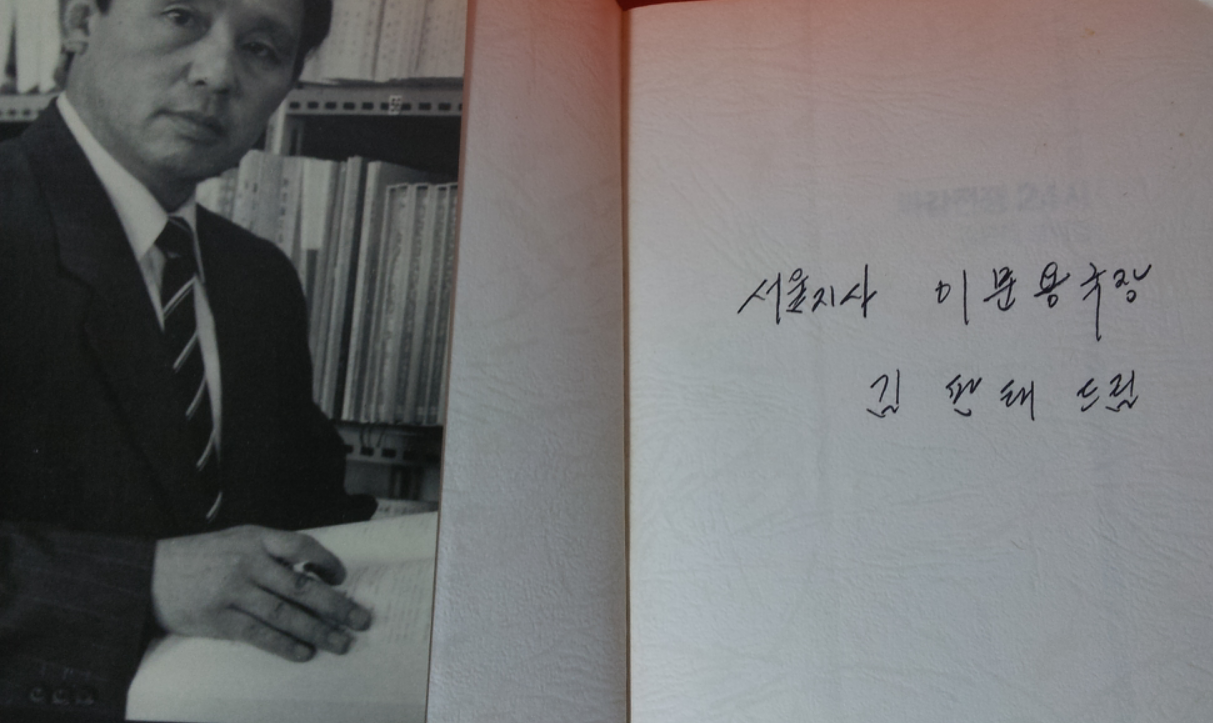 서울지사 이문용국장
김판태 드림